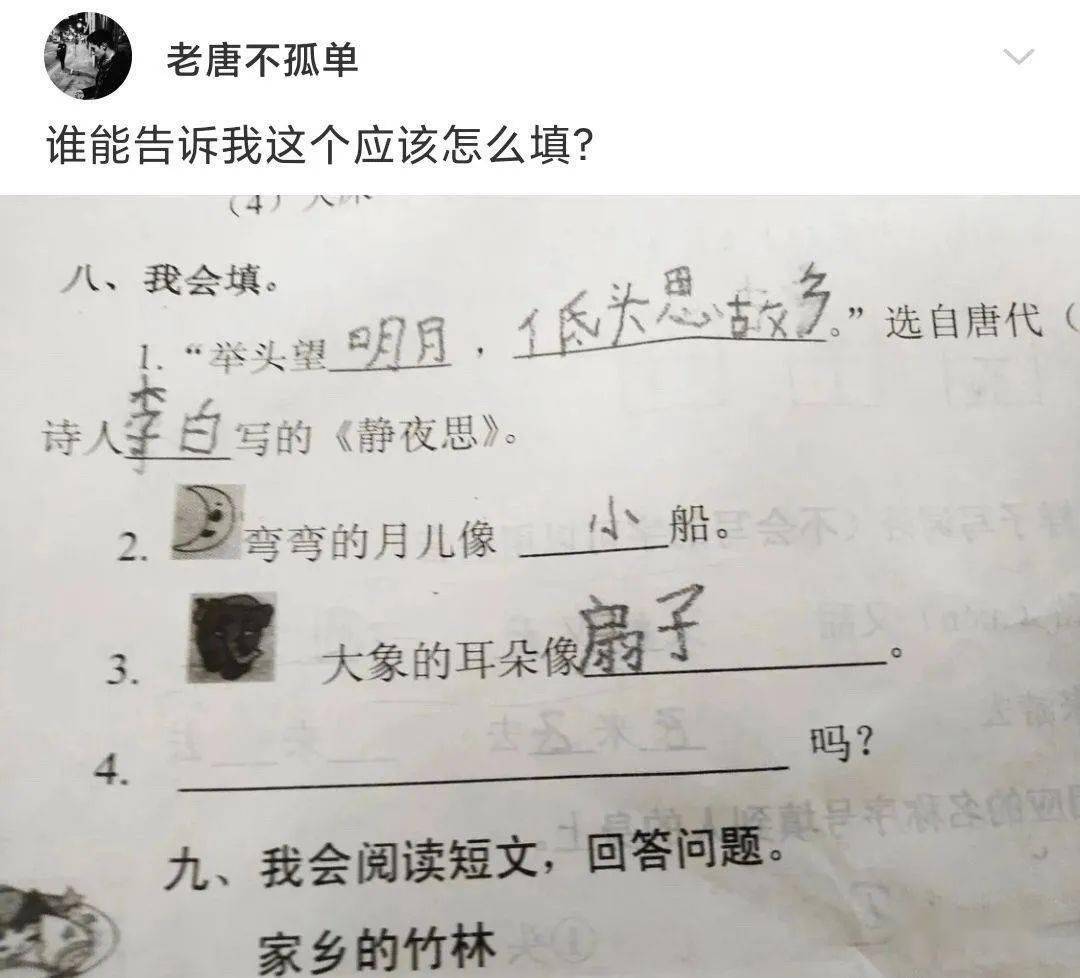 老唐不孤单
谁能告诉我这个应该怎么填?
(4)
八、我会填。
1. “举头望明月，低头思故乡。”选自唐代（
诗人李白写的《静夜思》。
2. 弯弯的月儿像 小 船。
3. 大象的耳朵像扇子。
4. 吗？
九、我会阅读短文，回答问题。
家乡的竹林